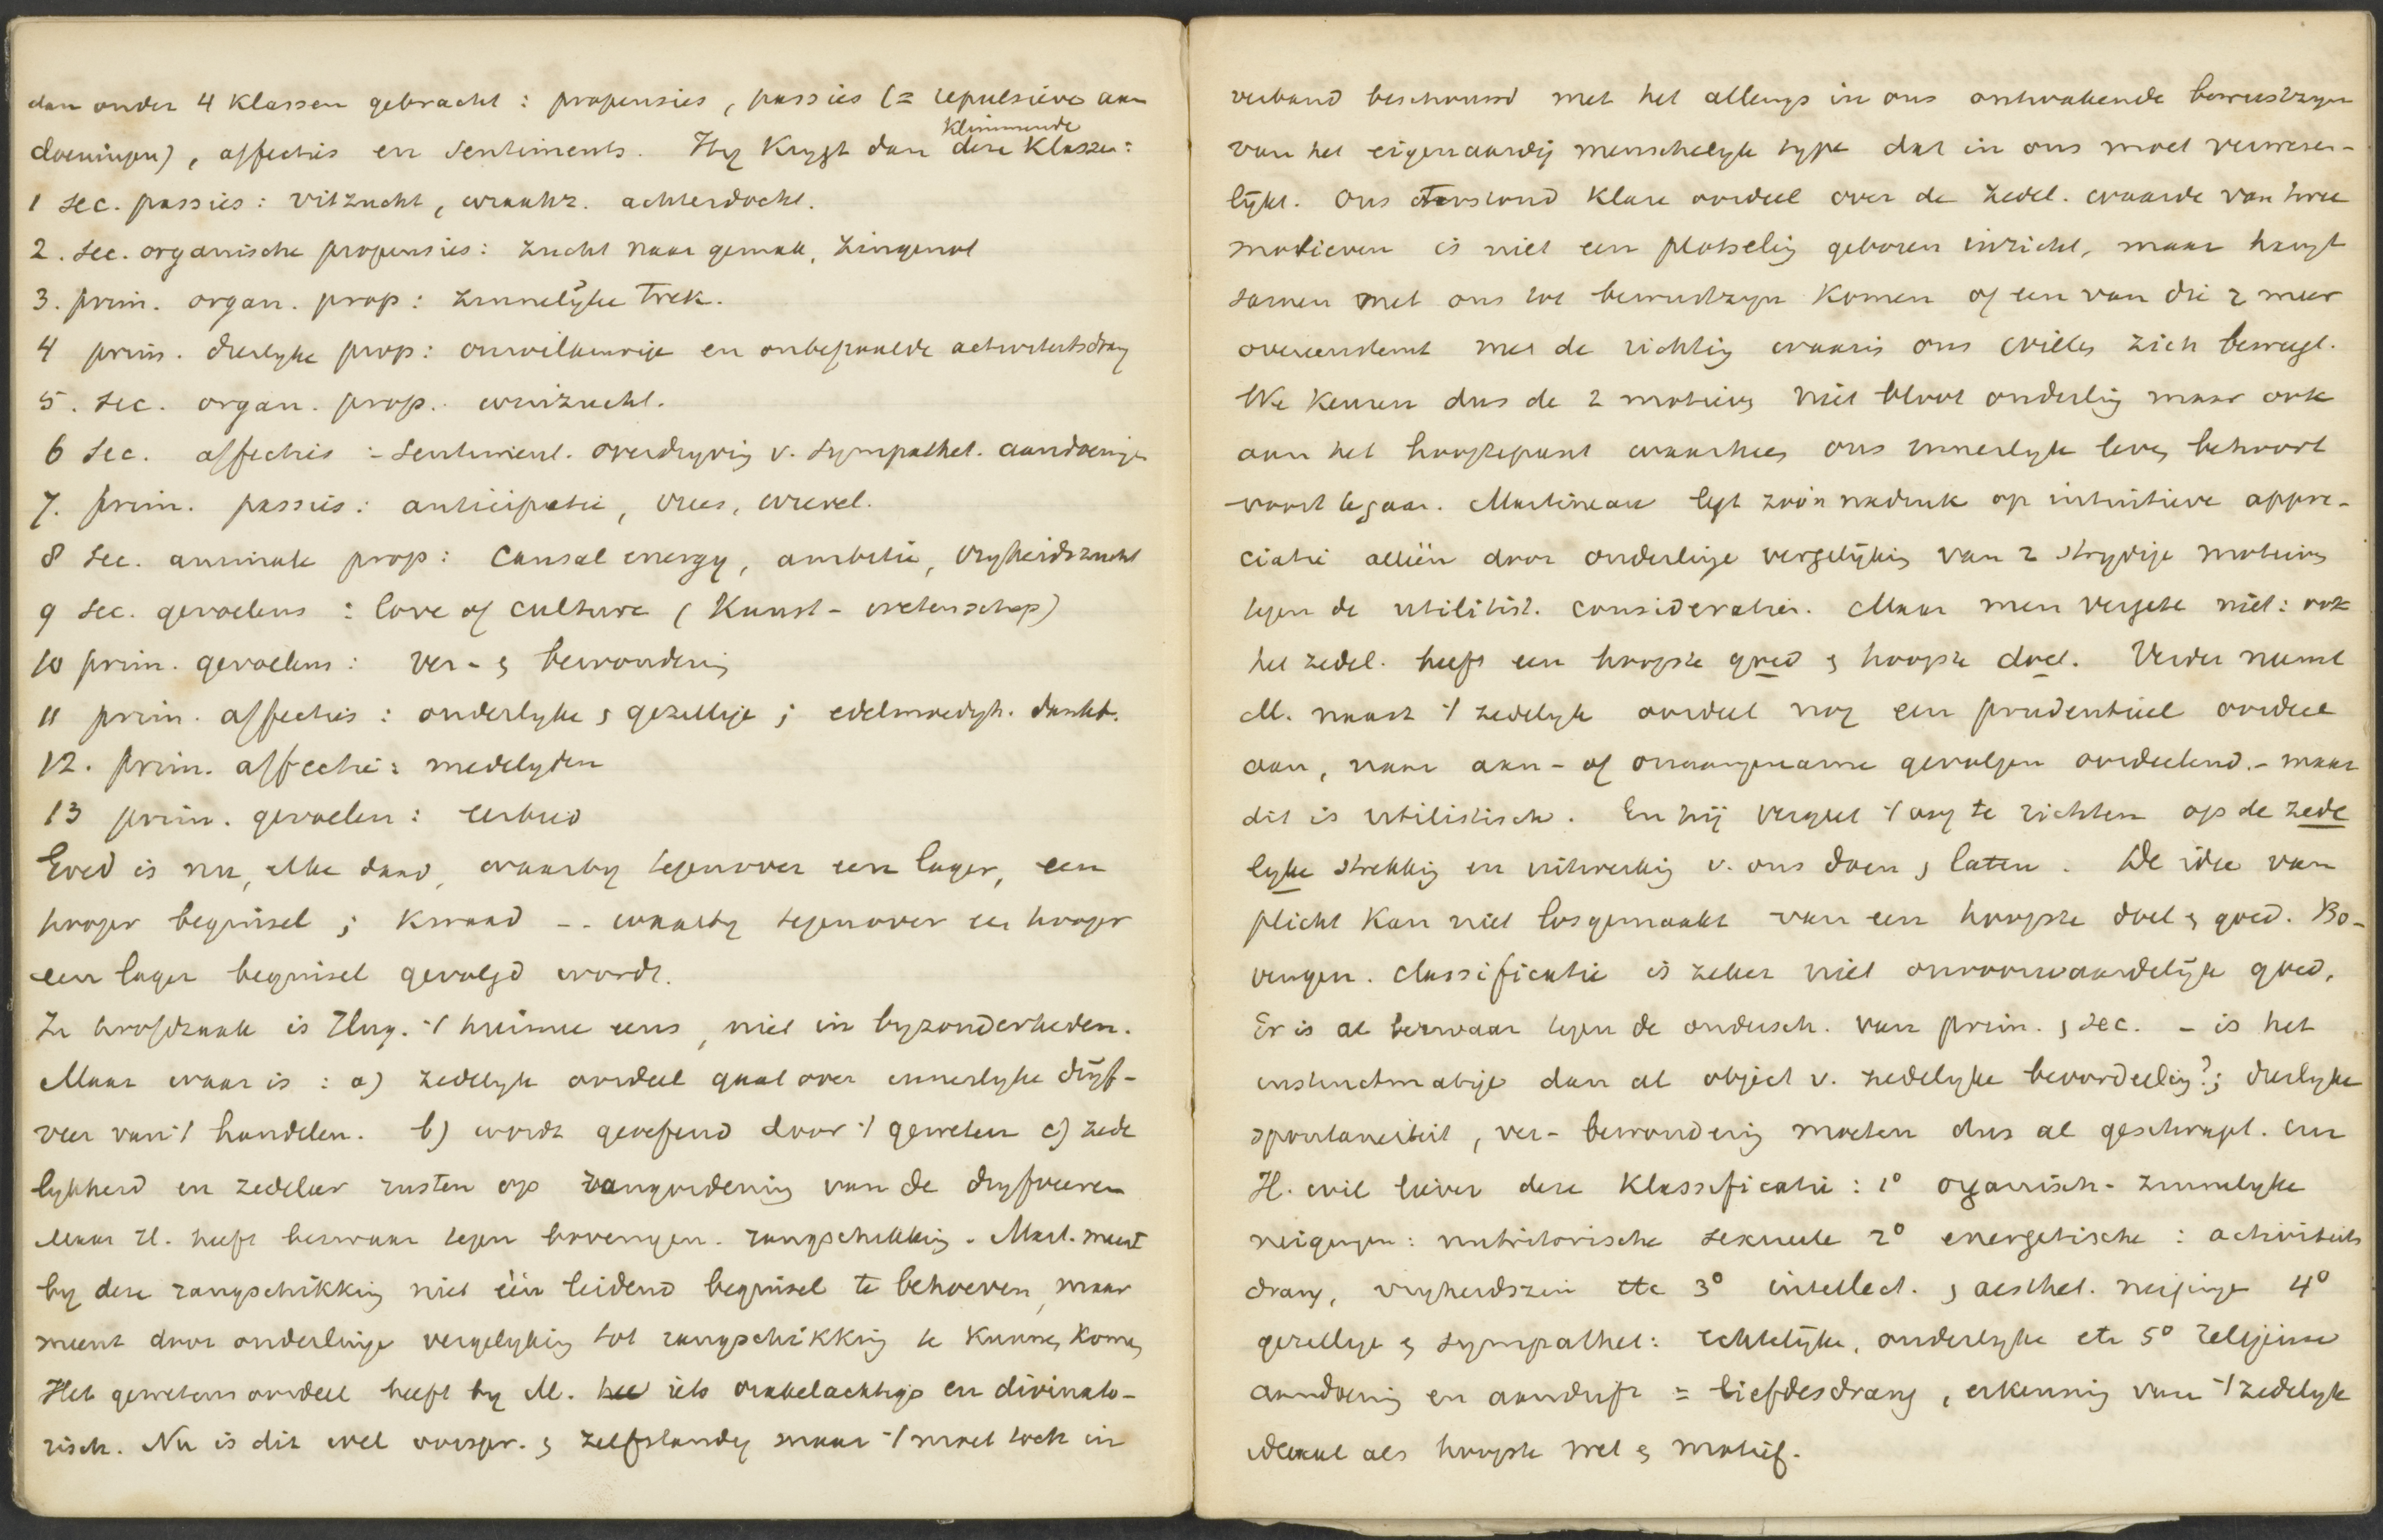 dan onder 4 Klassen gebracht : propensies , passies (= repulsieve aan
klimmende
doeningen) , affecties en sentiments. Hij Krijgt dan deze Klassen :
1 sec. passies : vitzucht , wraakz. achterdocht.
2. sec. organische propensies : zucht naar gemak, zingenot
3. prim. organ. prop : zinnelijke Trek.
4 prim. dierlijke prop : onwillekeurige en onbepaalde activiteitsdrang
5. sec. organ. prop. winzucht.
6 sec. affecties : sentiment. overdrijving v. sympathet. aandoeningen
7. prim. passies : antieipatie , vrees, wrevel.
8 sec. animale prop : Causal energy , ambitie , vrijheidszucht
9 sec. gevoelens : love of culture ( Kunst - wetenschap)
10 prim. gevoelens : ver- & bewondering
11 prim. affecties : ouderlijke & gezellige ; edelmoedigh. dankb.
12. prim. affectie : medelijden
13 prim. gevoelen : eerbied
Goed is nu, elke daad, waarbij tegenover een lager, een
hooger beginsel ; Kwaad - - waarbij tegenover een hooger
een lager beginsel gevolgd wordt.
In hoofdzaak is Hug. 't hiermee eens , niet in bijzonderheden.
Maar waar is : a) zedelijk oordeel gaat over innerlijke drijf-
veer van 't handelen. b) wordt geoefend door 't geweten c) zede
lijkheid en zedeleer rusten op rangordening van de drijfveeren
Maar H. heeft bezwaar tegen bovengen. rangschikking. Mart. meent
bij deze rangschikking niet één leidend beginsel te behoeven, maar
meent door onderlinge vergelijking tot rangschikking te Kunnen Komen
Het gewetensoordeel heeft bij M. iets orakelachtigs en divinato-
risch. Nu is dit wel oorspr. & zelfstandig maar 't moet toch in
verband beschouwd met het allengs in ons ontwakende bewustzijn
van het eigenaardig menschelijk type dat in ons moet verwezen-
lijkt. Ons terstond Klare oordeel over de zedel. waarde van twee
motieven is niet een plotselig geboren inzicht, maar hangt
samen met ons tot bewustzijn Komen of een van die 2 meer
overeenstemt met de richting waarin ons willen zich beweegt.
We Keuren dus de 2 motieven niet bloot onderling maar ook
aan het hoogtepunt waarheen ons innerlijke leven behoort
voort te gaan. Martineau legt zoo'n nadruk op intuitieve appre-
ciatie alléén door onderlinge vergelijking van 2 strijdige motieven
tegen de utilitist. consideraties. Maar men vergete niet : ook
het zedel. heeft een hoogste goed & hoogste doel. Verder neemt
M. naast 't zedelijk oordeel nog een prudentieel oordeel
aan, naar aan- of onaangename gevolgen oordeelend. - maar
dit is utilistisch. En hij vergeet 't oog te richten op de zede
lijke strekking en uitwerking v. ons doen & laten. De idee van
plicht Kan niet losgemaakt van een hoogste doel & goed. Bo-
vengen. classificatie is zeker niet onvoorwaardelijk goed.
Er is al bezwaar tegen de ondersch. van prim. & sec. - is het
instinctmatige dan al object v. zedelijke beoordeeling? ; dierlijke
spontaneiteit, ver- bewondering moeten dus al geschrapt. En
H. wil liever deze Klassificatie : 1° organisch- zinnelijke
neigingen : nutritorische sexueele 2° energetische : activiteits
drang, vrijheidszin etc 3° intellect. & aesthet. neigingen 4°
gezellige & sympathet : echtelijke, ouderlijke etc 5° religieuse
aandoening en aandrift = liefdesdrang , erkenning van 't zedelijk
ideaal als hoogste wet & motief.